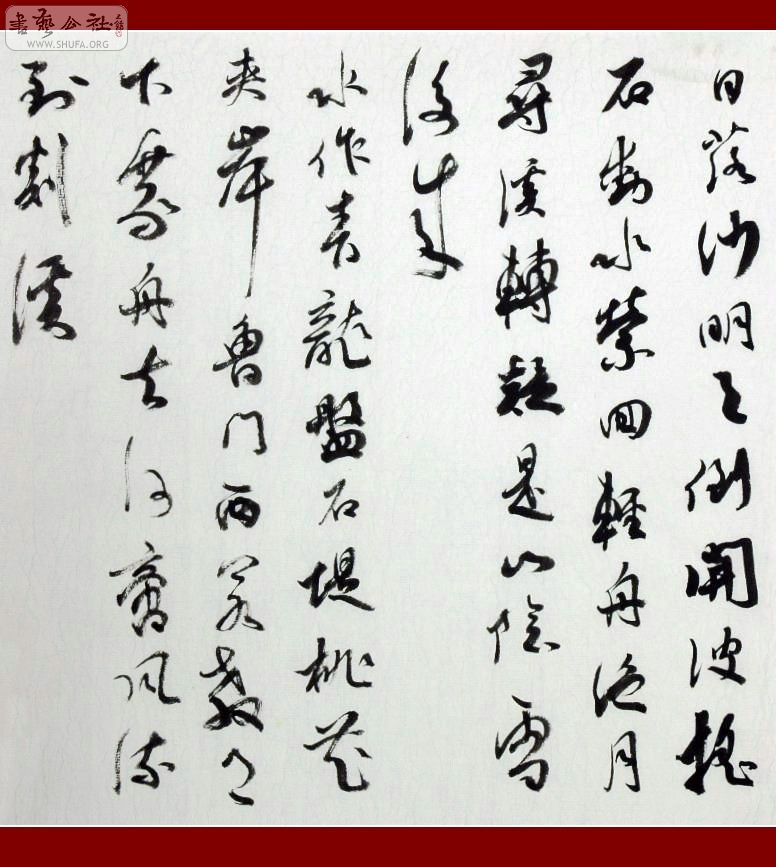 書藝公社
WWW.SHUFA.ORG
日落沙明天倒開波搖
石動水縈回輕舟泛月
尋溪轉疑是山陰雪
後来
水作青龍盤石堤桃花
夾岸魯門西若教月
下乘舟去何啻風流
到剡溪